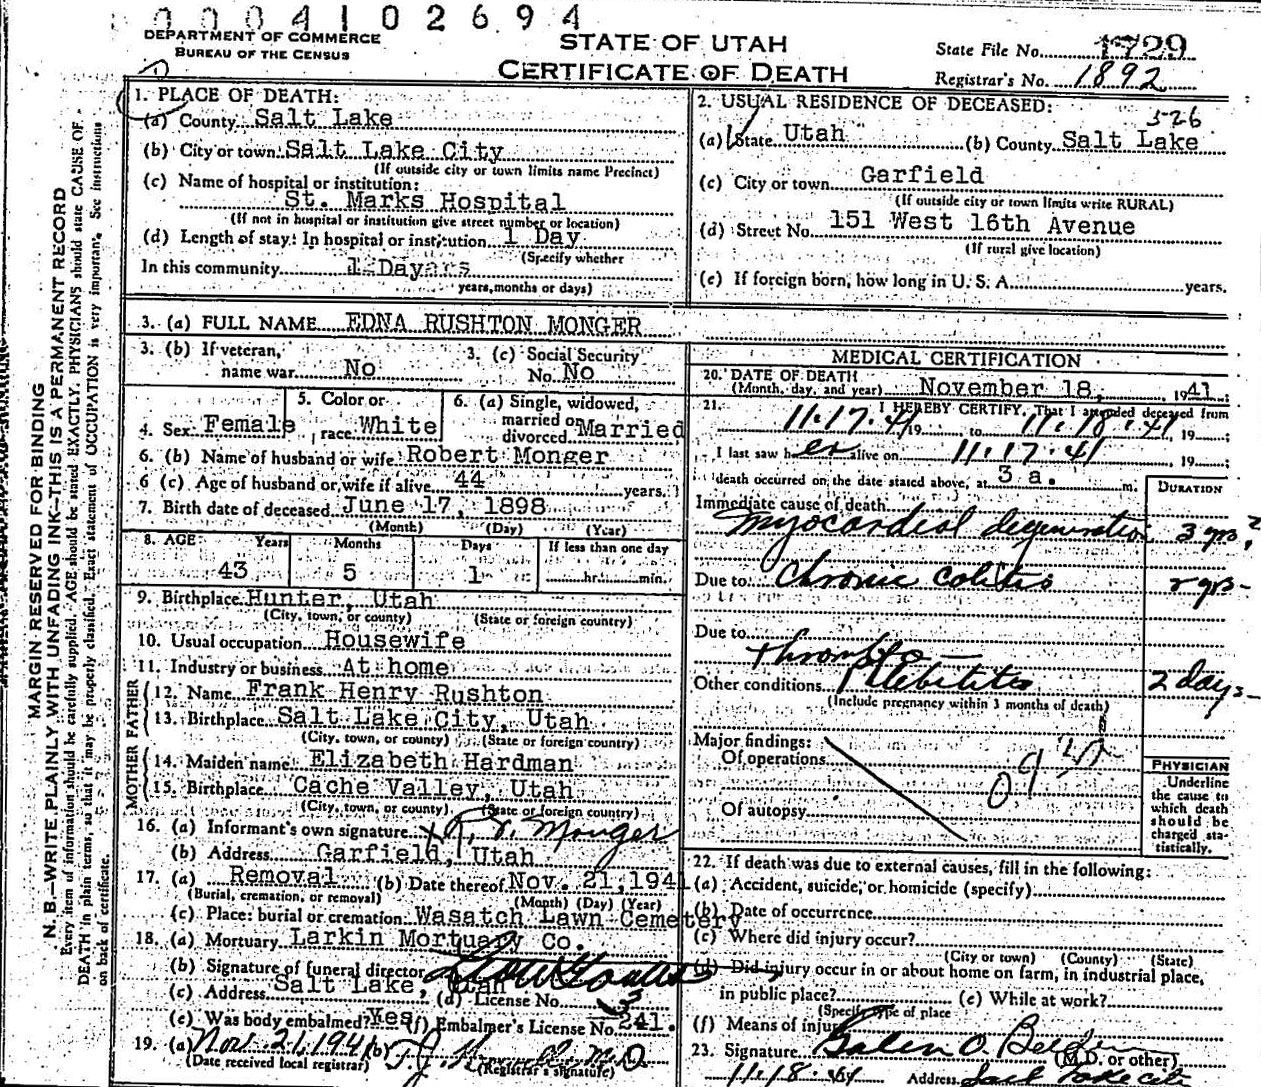 0004102694
DEPARTMENT OF COMMERCE
BUREAU OF THE CENSUS
STATE OF UTAH
CERTIFICATE OF DEATH
State File No. 1729
Registrar's No. 1892
MARGIN RESERVED FOR BINDING
N. B.—WRITE PLAINLY, WITH UNFADING INK—THIS IS A PERMANENT RECORD
Every item of information should be carefully supplied. AGE should be stated EXACTLY. PHYSICIANS should state CAUSE OF
DEATH in plain terms, so that it may be properly classified. Exact statement of OCCUPATION is very important. See instructions
on back of certificate.
1. PLACE OF DEATH:
(a) County Salt Lake
(b) City or town Salt Lake City
(If outside city or town limits name Precinct)
(c) Name of hospital or institution:
St. Marks Hospital
(If not in hospital or institution give street number or location)
(d) Length of stay: In hospital or institution 1 Day
(Specify whether
In this community 1 Day
years, months or days)
2. USUAL RESIDENCE OF DECEASED:
526
(a) State Utah (b) County Salt Lake
(c) City or town Garfield
(If outside city or town limits write RURAL)
(d) Street No. 151 West 16th Avenue
(If rural give location)
(e) If foreign born, how long in U. S. A. years.
3. (a) FULL NAME EDNA RUSHTON MONGER
3. (b) If veteran, name war No
3. (c) Social Security No. No
4. Sex Female
5. Color or race White
6. (a) Single, widowed, married or divorced Married
6. (b) Name of husband or wife Robert Monger
6 (c) Age of husband or wife if alive 44 years.
7. Birth date of deceased June 17, 1898
(Month) (Day) (Year)
8. AGE Years Months Days If less than one day
43 5 1 hr. min.
9. Birthplace Hunter, Utah
(City, town, or county) (State or foreign country)
10. Usual occupation Housewife
11. Industry or business At home
FATHER
12. Name Frank Henry Rushton
13. Birthplace Salt Lake City, Utah
(City, town, or county) (State or foreign country)
MOTHER
14. Maiden name Elizabeth Hardman
15. Birthplace Cache Valley, Utah
(City, town, or county) (State or foreign country)
16. (a) Informant's own signature x R. V. Monger
(b) Address Garfield, Utah
17. (a) Removal (b) Date thereof Nov. 21, 1941
(Burial, cremation, or removal) (Month) (Day) (Year)
(c) Place: burial or cremation Wasatch Lawn Cemetery
18. (a) Mortuary Larkin Mortuary Co.
(b) Signature of funeral director
(c) Address Salt Lake, Utah (d) License No. 3
(e) Was body embalmed? Yes (f) Embalmer's License No. 241.
19. (a) Nov. 21, 1941 (b) T. J. M.D.
(Date received local registrar) (Registrar's signature)
MEDICAL CERTIFICATION
20. DATE OF DEATH
(Month, day, and year) November 18, 1941
21. I HEREBY CERTIFY, That I attended deceased from
11.17.41 19 to 11.18.41, 19 ;
I last saw her alive on 11.17.41, 19 ;
death occurred on the date stated above, at 3 a. m.
DURATION
Immediate cause of death
Myocardial degeneration 3 yrs?
Due to Chronic colitis 2 yrs-
Due to
Thrombo-
Other conditions Phlebitis 2 days-
(Include pregnancy within 3 months of death)
Major findings:
Of operations
Of autopsy
PHYSICIAN
Underline
the cause to
which death
should be
charged sta-
tistically.
22. If death was due to external causes, fill in the following:
(a) Accident, suicide, or homicide (specify)
(b) Date of occurrence
(c) Where did injury occur?
(City or town) (County) (State)
(d) Did injury occur in or about home on farm, in industrial place,
in public place? (e) While at work?
(Specify type of place
(f) Means of injury
23. Signature Galen O. Belden (M.D. or other)
11.18.41 Address Salt Lake City